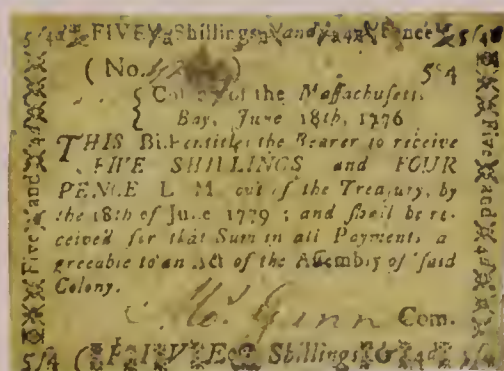 5/4d FIVE Shillings and 4d Pence 5/4d
(No. ) 5s4
Colony of the Maſſachuſetts
Bay, June 18th, 1776
THIS Bill entitles the Bearer to receive
FIVE SHILLINGS and FOUR
PENCE L. M. out of the Treaſury, by
the 18th of June 1779 ; and ſhall be re-
ceived for that Sum in all Payments a
greeable to an Act of the Aſſembly of ſaid
Colony.
Com.
5/4 (FIVE Shillings & 4d 5/4
Five and 4d